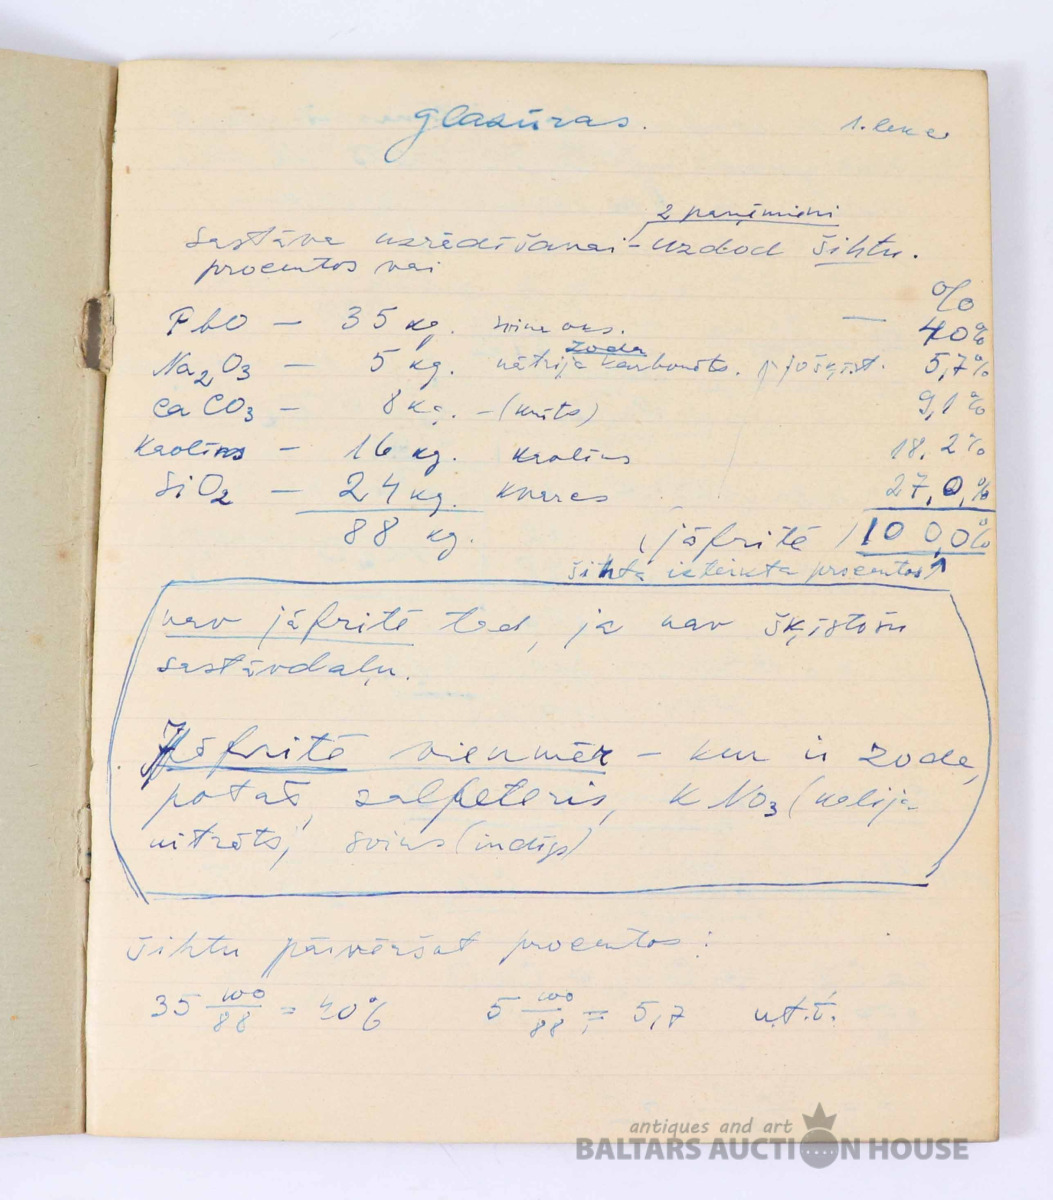 glazūras. 1. lekc
2 paņēmieni
Sastāva uzrādīšanai - uzdod šihtu.
procentos vai
%
PbO — 35 kg. svina oks. — 40%
zoda
Na2O3 — 5 kg. nātrija karbonāts. 5,7%
CaCO3 — 8 kg. - (krīts) 9,1%
Kaolīns — 16 kg. kaolīns 18,2%
SiO2 — 24 kg. kvarcs 27,0,%
88 kg. (jāfritē) 100,0%
šihta izteikta procentos
nav jāfritē tad, ja nav šķīstošu
sastāvdaļu.
Jāfritē vienmēr — kur ir zoda,
potašs, salpeteris, KNO3 (kalija
nitrāts, svins (indīgs)
šihtu pārvēršot procentos:
35 100/88 = 40% 5 100/88 = 5,7 u.t.t.
antiques and art
BALTARS AUCTION HOUSE